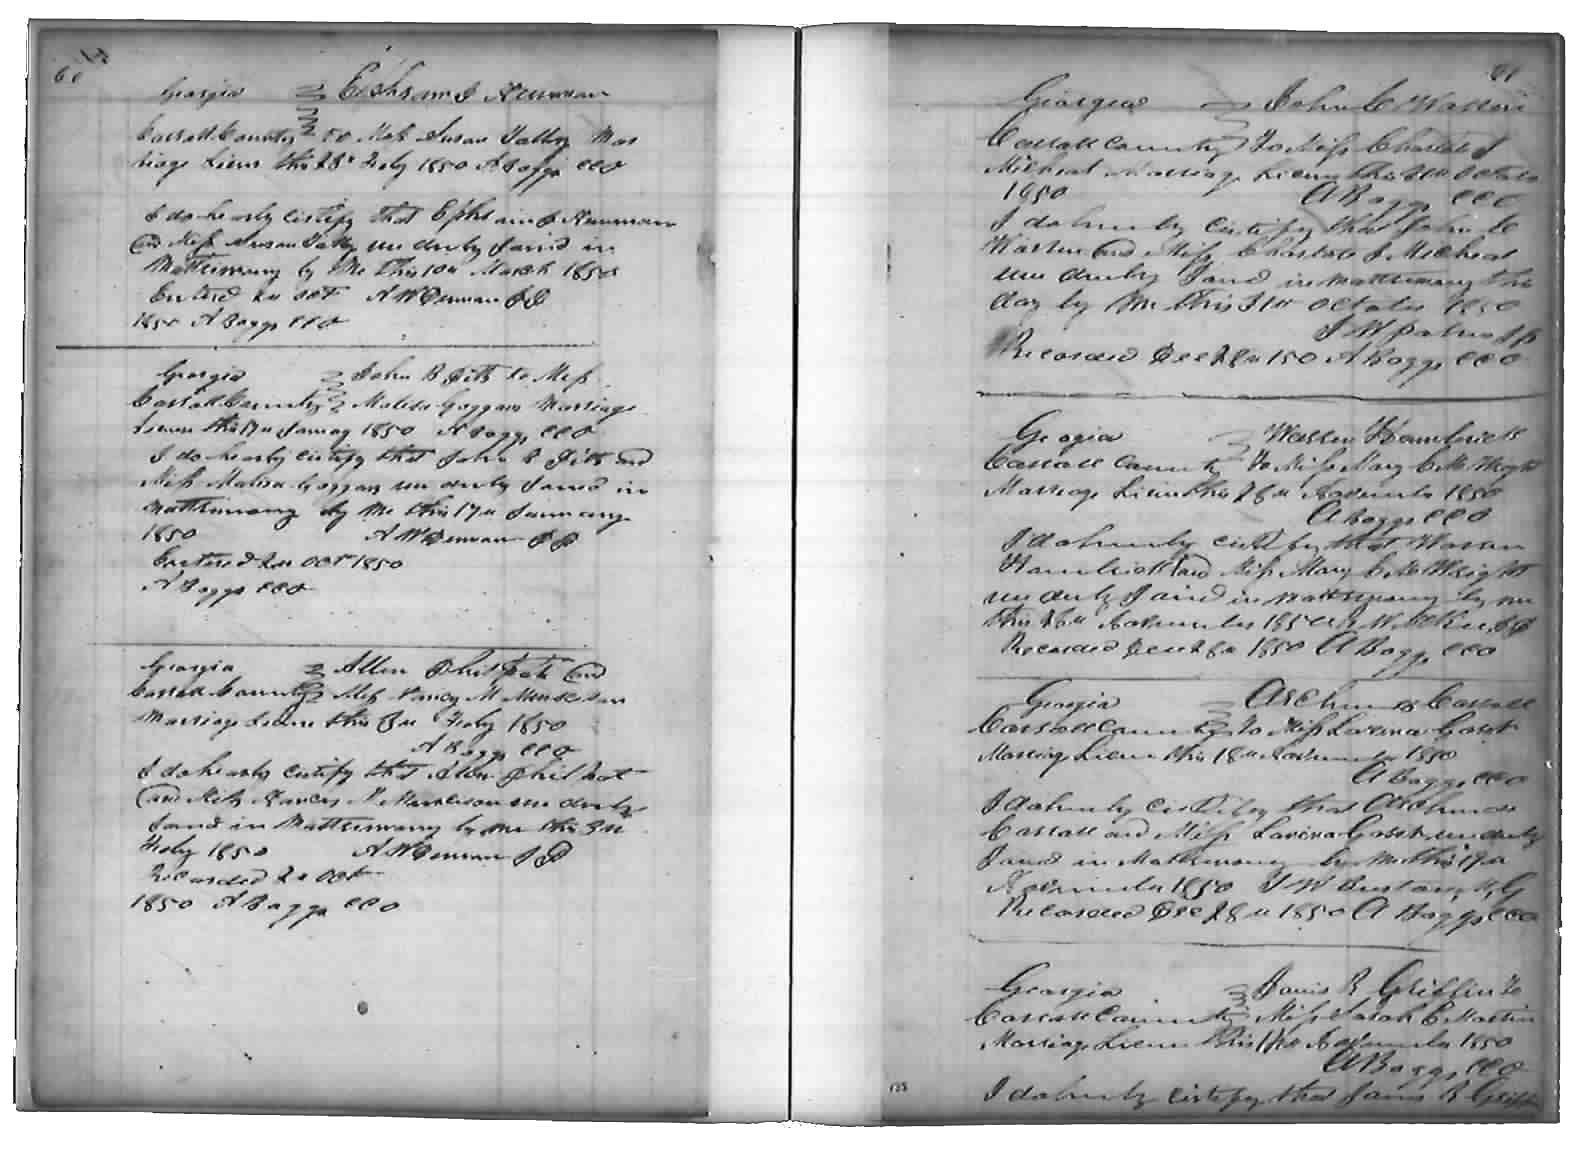 60
Georgia Ephraim J Newman
Carroll County to Miss Susan Talley Mar
riage Licens this 28th Feby 1850 A Boggs CCO
I do hearby certify that Ephraim J Newman
and Miss Susan Tally wer duly Joind in
Mattrimony by Me this 10th March 1850
Entered 2th Oct A W Denman JP
1850 A Boggs CCO
Georgia John R Pitts to Miss
Carroll County Malisa Goggans Marriage
Licens this 17th January 1850 A Boggs CCO
I do hearby certify that John R Pitts and
Miss Malisa Goggans wer duly Joind in
Mattrimony by Me this 17th January
1850 A W Denman JP
Entered 2th Oct 1850
A Boggs CCO
Georgia Allen Philpot and
Carroll County Miss Nancy M
Marriage Licens this 3th Feby 1850
A Boggs CCO
I do hearby certify that Allen Philpot
and Miss Nancy M wer duly
Joind in Mattrimony by Me this 3th
Feby 1850 A W Denman JP
Recorded 2th Oct
1850 A Boggs CCO
61
Georgia John C Warren
Carroll County To Miss J
Micheal Marriage Licens this Octobr
1850 A Boggs CCO
I do hearby certify that John C
Warren and Miss J Micheal
wer duly Joind in mattrimony this
day by Me this 31th October 1850
J W JP
Recorded Dec 28th 1850 A Boggs CCO
Georgia Warren Hambrick
Carroll County to Miss Mary C McWright
Marriage Licens this November 1850
A Boggs CCO
I do hearby certify that Warren
Hambrick and Miss Mary C McWright
wer duly Joind in mattrimony by me
this November 1850 JP
Recorded Dec 28th 1850 A Boggs CCO
Georgia Carroll
Carroll County to Miss Lavina
Marriage Licens this 18th November 1850
A Boggs CCO
I do hearby certify that
Carroll and Miss Lavina wer duly
Joind in Matrimony by Me this
November 1850 J W
Recorded Dec 28th 1850 A Boggs CCO
Georgia R Griffin to
Carroll County Miss Sarah E Martin
Marriage Licens this November 1850
A Boggs CCO
I do hearby certify that R Griffin